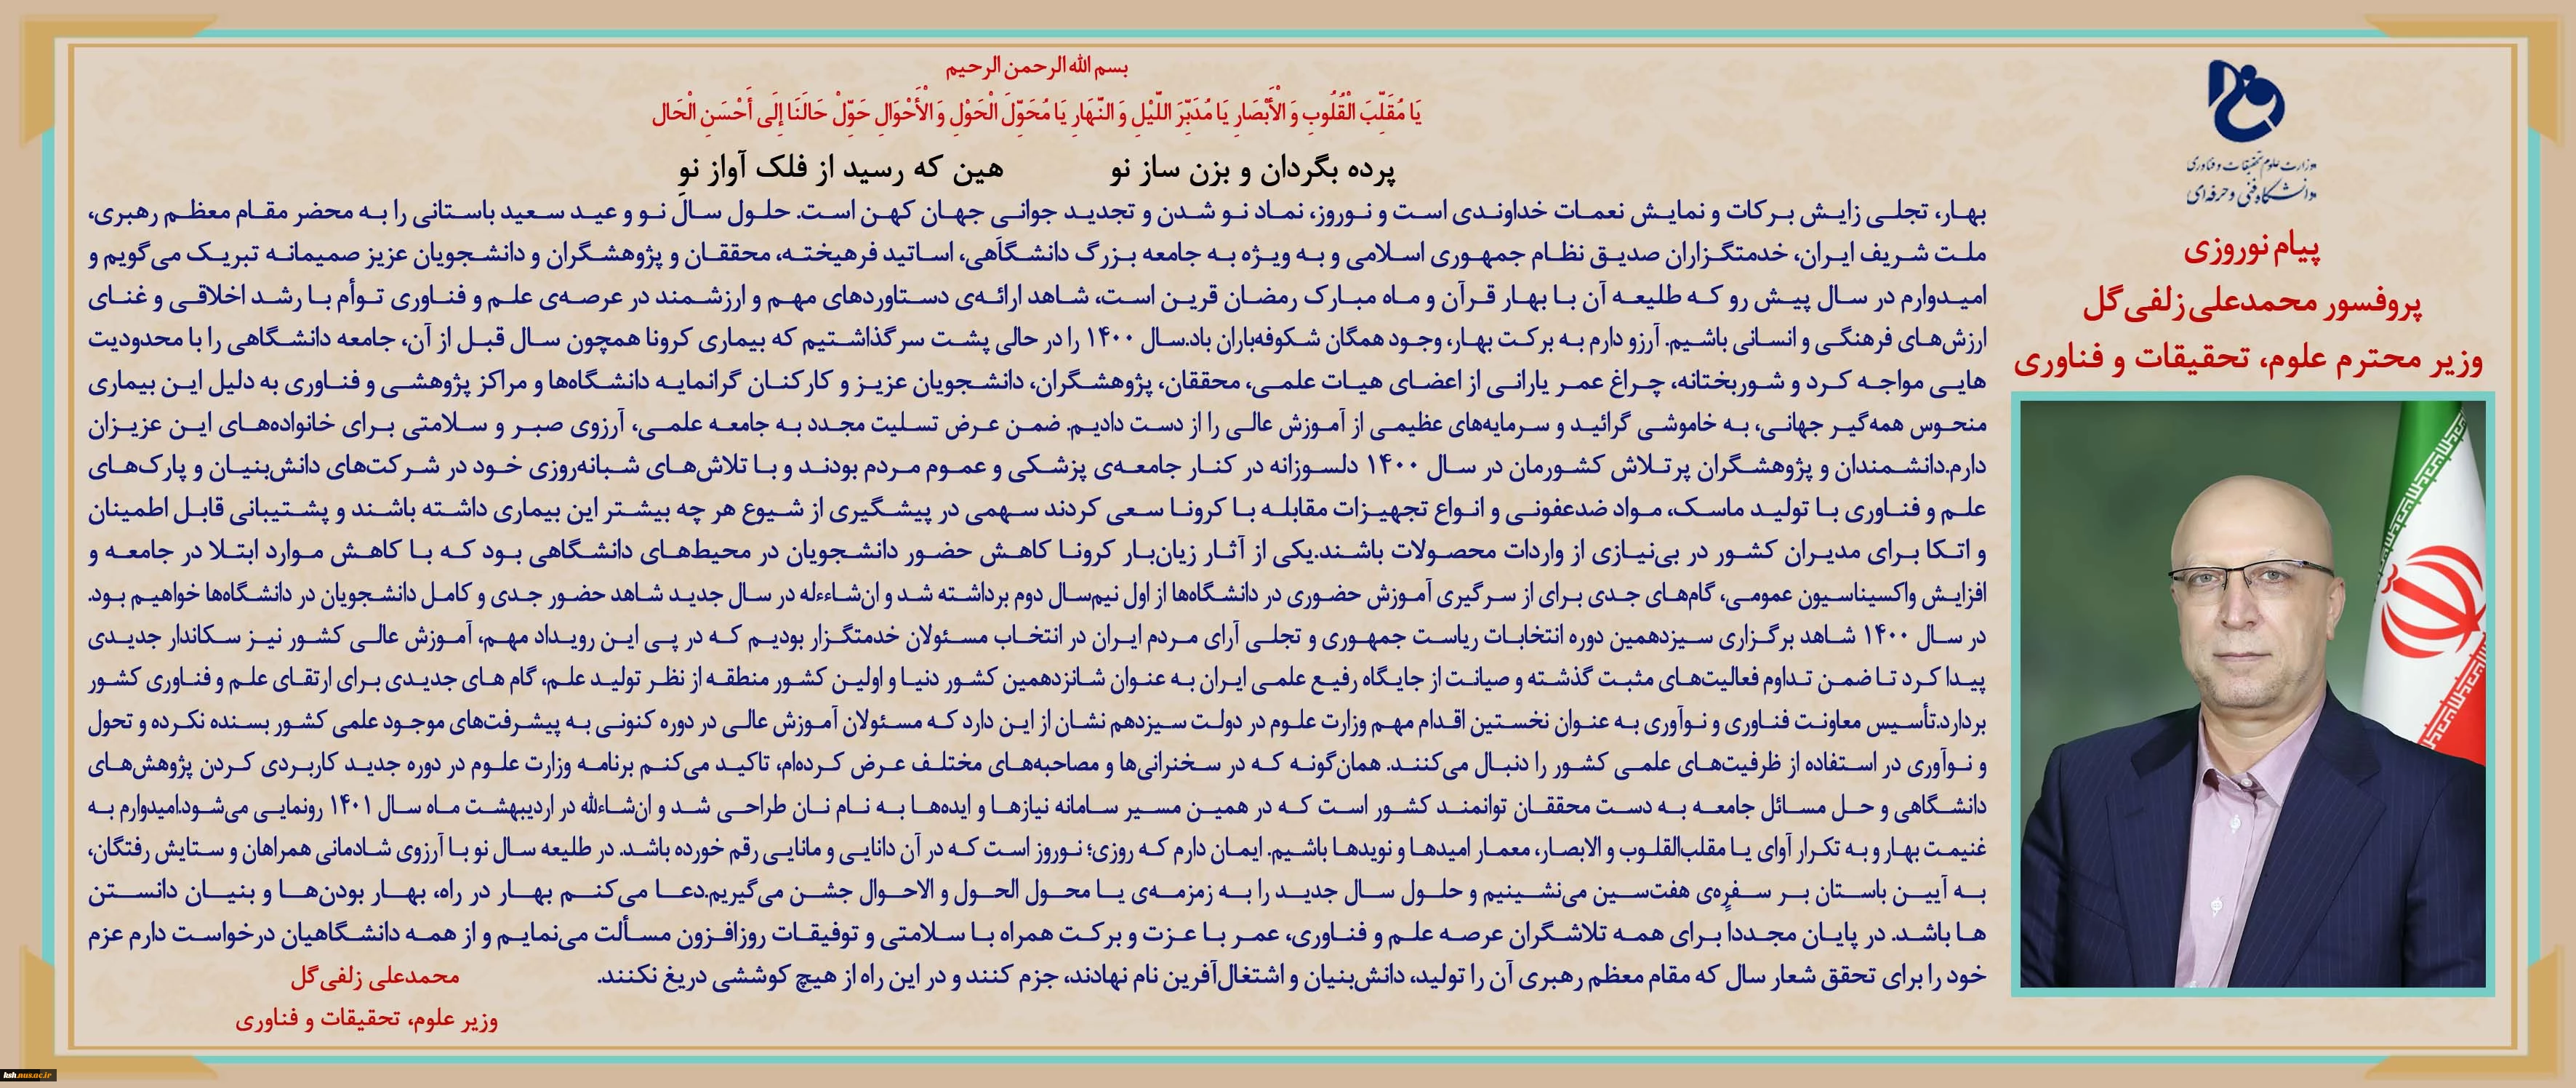 وزارت علوم تحقیقات و فناوری
دانشگاه فنی و حرفه‌ای
پیام نوروزی
پروفسور محمدعلی زلفی‌گل
وزیر محترم علوم، تحقیقات و فناوری
بسم الله الرحمن الرحیم
يَا مُقَلِّبَ الْقُلُوبِ وَ الْأَبْصَارِ يَا مُدَبِّرَ اللَّيْلِ وَ النَّهَارِ يَا مُحَوِّلَ الْحَوْلِ وَ الْأَحْوَالِ حَوِّلْ حَالَنَا إِلَى أَحْسَنِ الْحَال
پرده بگردان و بزن ساز نو هین که رسید از فلک آواز نو
بهار، تجلی زایش برکات و نمایش نعمات خداوندی است و نوروز، نماد نو شدن و تجدید جوانی جهان کهن است. حلول سال نو و عید سعید باستانی را به محضر مقام معظم رهبری،
ملت شریف ایران، خدمتگزاران صدیق نظام جمهوری اسلامی و به ویژه به جامعه بزرگ دانشگاهی، اساتید فرهیخته، محققان و پژوهشگران و دانشجویان عزیز صمیمانه تبریک می‌گویم و
امیدوارم در سال پیش رو که طلیعه آن با بهار قرآن و ماه مبارک رمضان قرین است، شاهد ارائه‌ی دستاوردهای مهم و ارزشمند در عرصه‌ی علم و فناوری توأم با رشد اخلاقی و غنای
ارزش‌های فرهنگی و انسانی باشیم. آرزو دارم به برکت بهار، وجود همگان شکوفه‌باران باد.سال ۱۴۰۰ را در حالی پشت سر گذاشتیم که بیماری کرونا همچون سال قبل از آن، جامعه دانشگاهی را با محدودیت
هایی مواجه کرد و شوربختانه، چراغ عمر یارانی از اعضای هیات علمی، محققان، پژوهشگران، دانشجویان عزیز و کارکنان گرانمایه دانشگاه‌ها و مراکز پژوهشی و فناوری به دلیل این بیماری
منحوس همه‌گیر جهانی، به خاموشی گرائید و سرمایه‌های عظیمی از آموزش عالی را از دست دادیم. ضمن عرض تسلیت مجدد به جامعه علمی، آرزوی صبر و سلامتی برای خانواده‌های این عزیزان
دارم.دانشمندان و پژوهشگران پرتلاش کشورمان در سال ۱۴۰۰ دلسوزانه در کنار جامعه‌ی پزشکی و عموم مردم بودند و با تلاش‌های شبانه‌روزی خود در شرکت‌های دانش‌بنیان و پارک‌های
علم و فناوری با تولید ماسک، مواد ضدعفونی و انواع تجهیزات مقابله با کرونا سعی کردند سهمی در پیشگیری از شیوع هر چه بیشتر این بیماری داشته باشند و پشتیبانی قابل اطمینان
و اتکا برای مدیران کشور در بی‌نیازی از واردات محصولات باشند.یکی از آثار زیان‌بار کرونا کاهش حضور دانشجویان در محیط‌های دانشگاهی بود که با کاهش موارد ابتلا در جامعه و
افزایش واکسیناسیون عمومی، گام‌های جدی برای از سرگیری آموزش حضوری در دانشگاه‌ها از اول نیم‌سال دوم برداشته شد و ان‌شاءءله در سال جدید شاهد حضور جدی و کامل دانشجویان در دانشگاه‌ها خواهیم بود.
در سال ۱۴۰۰ شاهد برگزاری سیزدهمین دوره انتخابات ریاست جمهوری و تجلی آرای مردم ایران در انتخاب مسئولان خدمتگزار بودیم که در پی این رویداد مهم، آموزش عالی کشور نیز سکاندار جدیدی
پیدا کرد تا ضمن تداوم فعالیت‌های مثبت گذشته و صیانت از جایگاه رفیع علمی ایران به عنوان شانزدهمین کشور دنیا و اولین کشور منطقه از نظر تولید علم، گام های جدیدی برای ارتقای علم و فناوری کشور
بردارد.تأسیس معاونت فناوری و نوآوری به عنوان نخستین اقدام مهم وزارت علوم در دولت سیزدهم نشان از این دارد که مسئولان آموزش عالی در دوره کنونی به پیشرفت‌های موجود علمی کشور بسنده نکرده و تحول
و نوآوری در استفاده از ظرفیت‌های علمی کشور را دنبال می‌کنند. همان‌گونه که در سخنرانی‌ها و مصاحبه‌های مختلف عرض کرده‌ام، تاکید می‌کنم برنامه وزارت علوم در دوره جدید کاربردی کردن پژوهش‌های
دانشگاهی و حل مسائل جامعه به دست محققان توانمند کشور است که در همین مسیر سامانه نیازها و ایده‌ها به نام نان طراحی شد و ان‌شاءلله در اردیبهشت ماه سال ۱۴۰۱ رونمایی می‌شود.امیدوارم به
غنیمت بهار و به تکرار آوای یا مقلب‌القلوب و الابصار، معمار امیدها و نویدها باشیم. ایمان دارم که روزی؛ نوروز است که در آن دانایی و مانایی رقم خورده باشد. در طلیعه سال نو با آرزوی شادمانی همراهان و ستایش رفتگان،
به آیین باستان بر سفره‌ی هفت‌سین می‌نشینیم و حلول سال جدید را به زمزمه‌ی یا محول الحول و الاحوال جشن می‌گیریم.دعا می‌کنم بهار در راه، بهار بودن‌ها و بنیان دانستن
ها باشد. در پایان مجددا برای همه تلاشگران عرصه علم و فناوری، عمر با عزت و برکت همراه با سلامتی و توفیقات روزافزون مسألت می‌نمایم و از همه دانشگاهیان درخواست دارم عزم
خود را برای تحقق شعار سال که مقام معظم رهبری آن را تولید، دانش‌بنیان و اشتغال‌آفرین نام نهادند، جزم کنند و در این راه از هیچ کوششی دریغ نکنند.
محمدعلی زلفی‌گل
وزیر علوم، تحقیقات و فناوری
hsh.nus.ac.ir